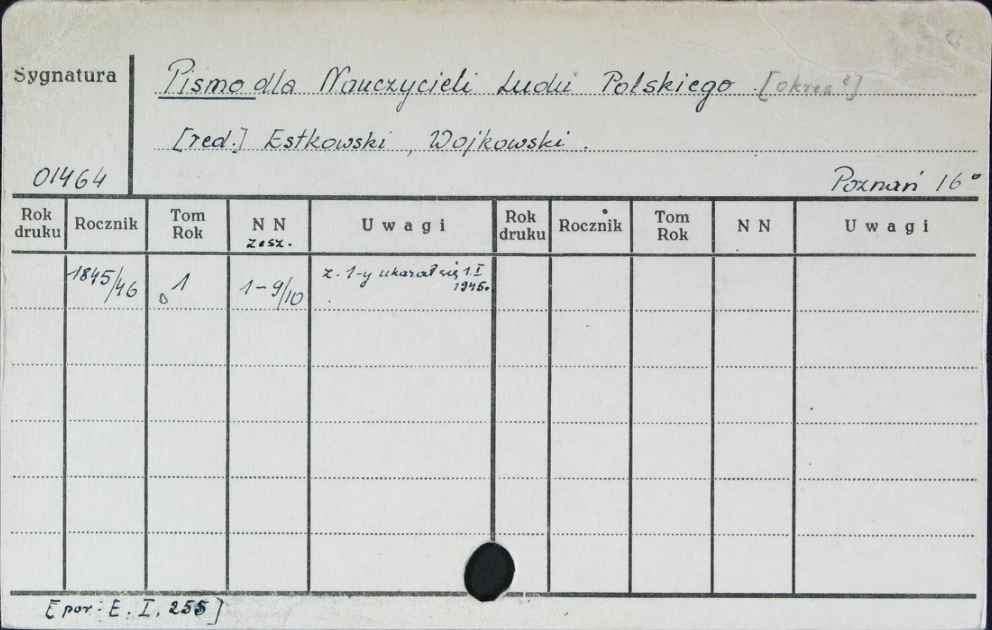 Sygnatura
Pismo dla Nauczycieli Ludu Polskiego
[red.] Estkowski, Wojkowski.
01464
Poznań 16°
Rok druku Rocznik Tom Rok N N zesz. U w a g i Rok druku Rocznik Tom Rok N N U w a g i
1845/46 1 1-9/10 z. 1-y ukazał się 1 I
1945.
[por: E. I. 255]